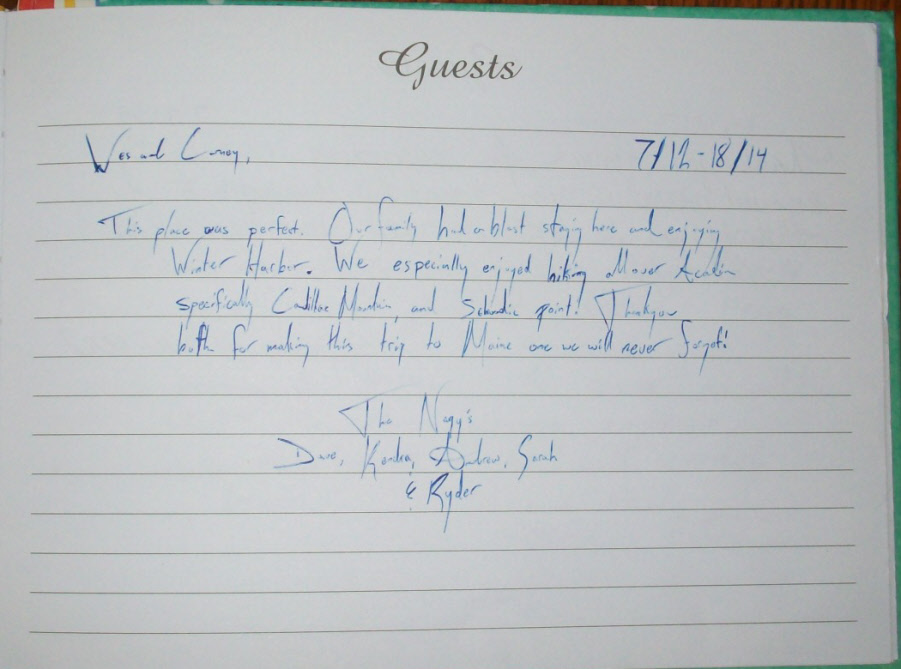 Guests
Wes and 7/12-18/14
This place was perfect. Our family had a blast staying here and enjoying
Winter Harbor. We especially enjoyed hiking all over Acadia
specifically Cadillac Mountain, and Schoodic point! Thank you
both for making this trip to Maine one we will never forget!
The Nagy's
Dave, Kendra, Andrew, Sarah
& Ryder